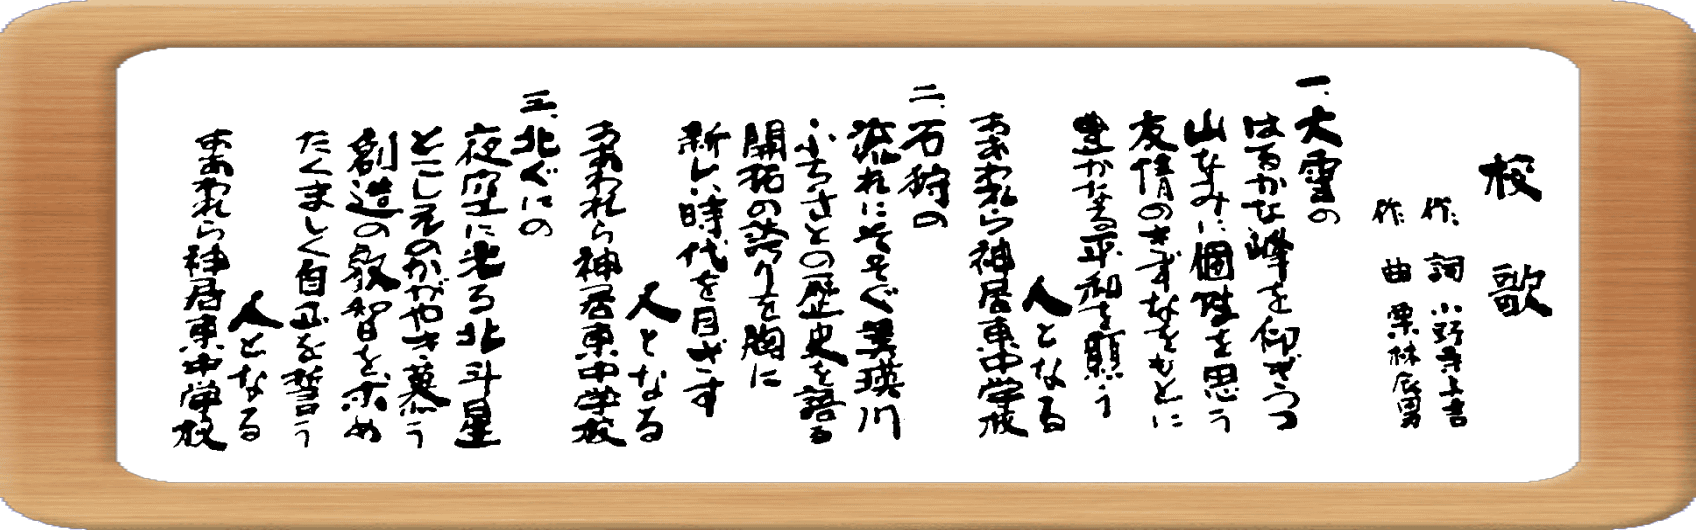 校歌
作詞 小野寺与吉
作曲 栗林辰男
一、大雪の
はるかな峰を仰ぎつつ
山なみに個性を思う
友情のきずなをもとに
豊かなる平和を願う
人となる
ああわれら神居東中学校
二、石狩の
流れにそそぐ美瑛川
ふるさとの歴史を語る
開拓の誇りを胸に
新しい時代を目ざす
人となる
ああわれら神居東中学校
三、北ぐにの
夜空に光る北斗星
とこしえのかがやき慕う
創造の叡智を求め
たくましく自立を誓う
人となる
ああわれら神居東中学校